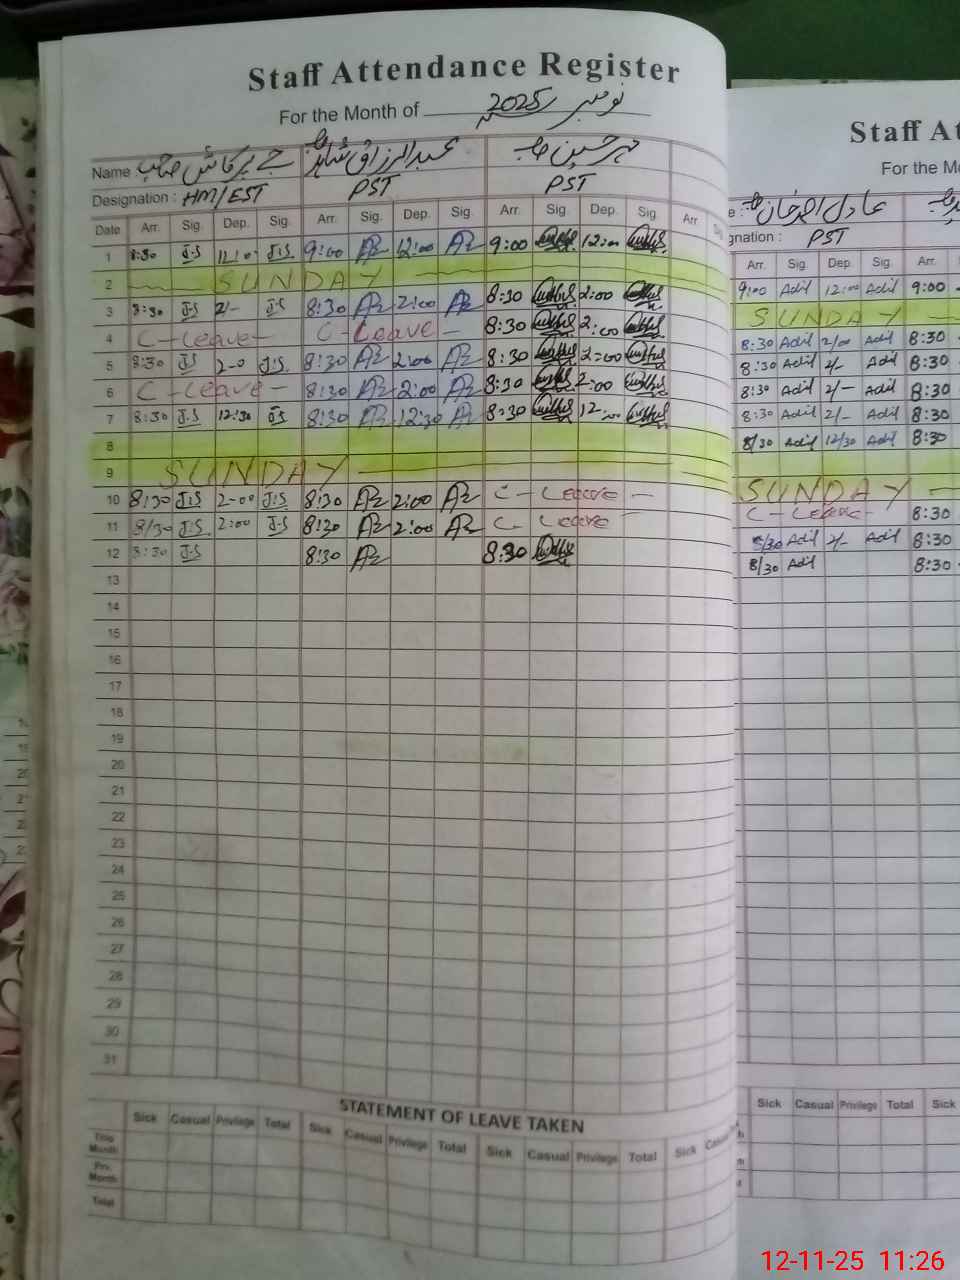 Staff Attendance Register
For the Month of نومبر 2025
Name : جے پرکاش صاحب عبدالرزاق مہر حسین صاحب
Designation : HM/EST PST PST
Date Arr. Sig. Dep. Sig. Arr. Sig. Dep. Sig. Arr. Sig. Dep. Sig. Arr.
1 8:30 J.S 11:0 J.S 9:00 AR 12:00 AR 9:00 12:00
2 SUNDAY
3 8:30 J.S 2/- J.S 8:30 AR 2:00 AR 8:30 2:00
4 C-Leave- C-Leave - 8:30 2:00
5 8:30 J.S 2-0 J.S 8:30 AR 2:00 AR 8:30 2:00
6 C-Leave - 8:30 AR 2:00 AR 8:30 2:00
7 8:30 J.S 12:30 J.S 8:30 AR 12:30 AR 8:30 12-
8
9 SUNDAY
10 8:30 J.S 2-00 J.S 8:30 AR 2:00 AR C - Leave -
11 8/30 J.S 2:00 J.S 8:30 AR 2:00 AR C - Leave -
12 8:30 J.S 8:30 AR 8:30
13
14
15
16
17
18
19
20
21
22
23
24
25
26
27
28
29
30
31
STATEMENT OF LEAVE TAKEN
Sick Casual Privilege Total Sick Casual Privilege Total Sick Casual Privilege Total Sick
This Month
Prv. Month
Total
Staff At
For the Mo
عادل احمد خان
gnation : PST
Arr. Sig. Dep. Sig. Arr.
9:00 Adil 12:00 Adil 9:00
SUNDAY
8:30 Adil 2/00 Adil 8:30
8:30 Adil 2/- Adil 8:30
8:30 Adil 2/- Adil 8:30
8:30 Adil 2/- Adil 8:30
8/30 Adil 12/30 Adil 8:30
SUNDAY
C - Leave - 8:30
8/30 Adil 2/- Adil 8:30
8/30 Adil 8:30
Sick Casual Privilege Total Sick
12-11-25 11:26